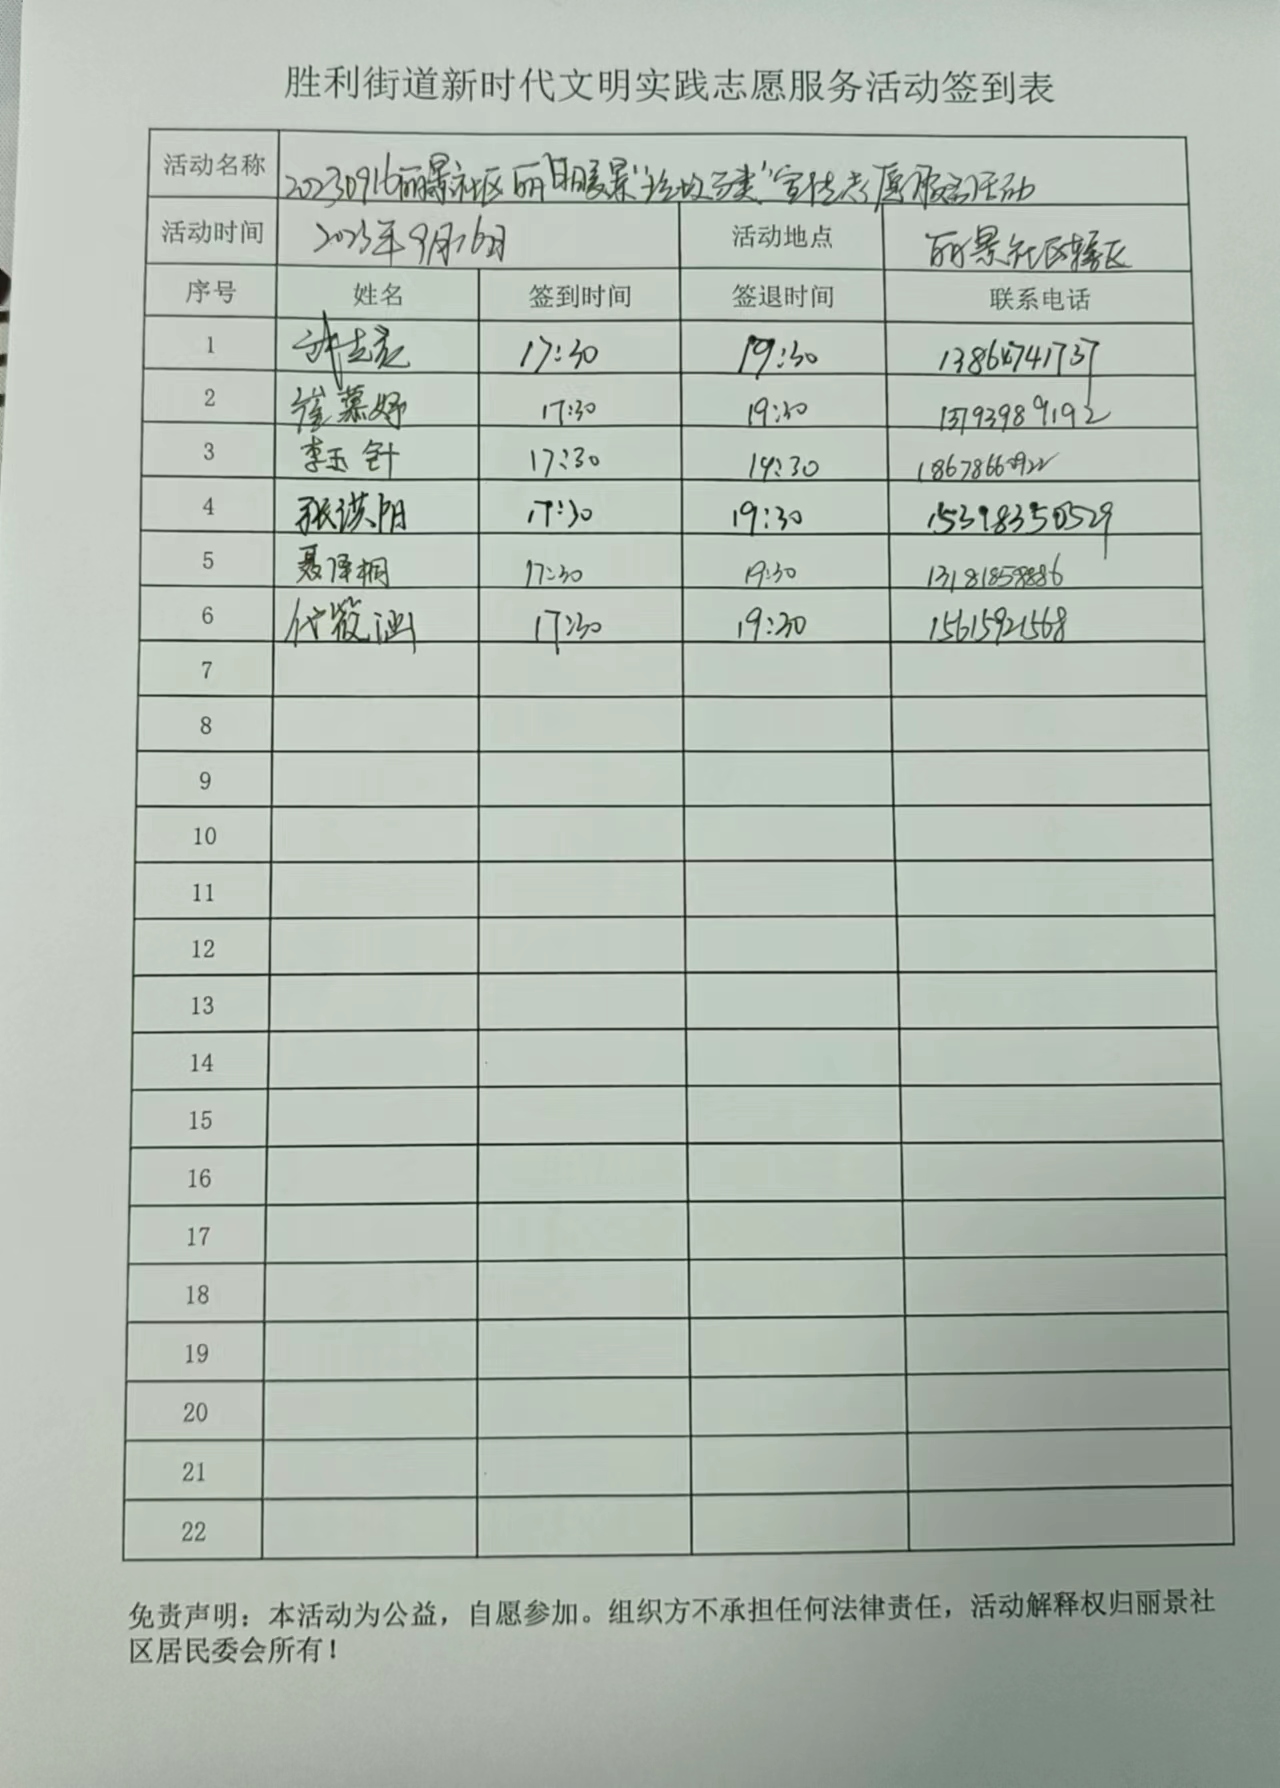 胜利街道新时代文明实践志愿服务活动签到表
活动名称 20230916丽景社区丽日暖景“垃圾分类”宣传志愿服务活动
活动时间 2023年9月16日 活动地点 丽景社区辖区
序号 姓名 签到时间 签退时间 联系电话
1 17:30 19:30
2 崔慕妤 17:30 19:30 13793989192
3 李玉针 17:30 19:30
4 张洪阴 17:30 19:30 15398350529
5 聂泽桐 17:30 19:30 13181859886
6 代筱涵 17:30 19:30 15615921568
7
8
9
10
11
12
13
14
15
16
17
18
19
20
21
22
免责声明：本活动为公益，自愿参加。组织方不承担任何法律责任，活动解释权归丽景社
区居民委会所有！